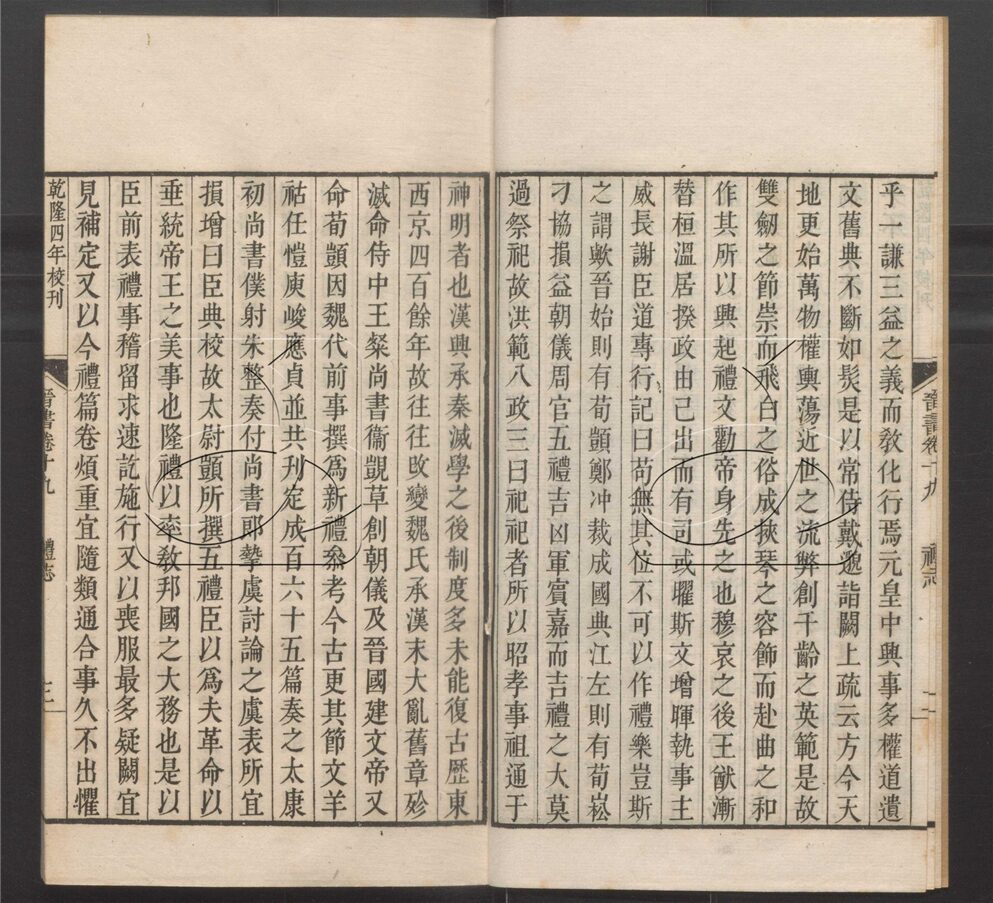 晉書卷十九 禮志
乎一謙三益之義而敎化行焉元皇中興事多權道遺
文舊典不斷如髮是以常侍戴邈詣闕上疏云方今天
地更始萬物權輿蕩近世之流弊創千齡之英範是故
雙劒之節崇而飛白之俗成挾琴之容飾而赴曲之和
作其所以興起禮文勸帝身先之也穆哀之後王猷漸
替桓溫居揆政由己出而有司或曜斯文增暉執事主
威長謝臣道專行記曰苟無其位不可以作禮樂豈斯
之謂歟晉始則有荀顗鄭冲裁成國典江左則有荀崧
刁協損益朝儀周官五禮吉凶軍賓嘉而吉禮之大莫
過祭祀故洪範八政三曰祀祀者所以昭孝事祖通于
神明者也漢興承秦滅學之後制度多未能復古歷東
西京四百餘年故往往攺變魏氏承漢末大亂舊章殄
滅命侍中王粲尚書衞覬草創朝儀及晉國建文帝又
命荀顗因魏代前事撰爲新禮叅考今古更其節文羊
祜任愷庾峻應貞並共刋定成百六十五篇奏之太康
初尚書僕射朱整奏付尚書郞摯虞討論之虞表所宜
損增曰臣典校故太尉顗所撰五禮臣以爲夫革命以
垂統帝王之美事也隆禮以率敎邦國之大務也是以
臣前表禮事稽留求速訖施行又以喪服最多疑闕宜
見補定又以今禮篇卷煩重宜隨類通合事久不出懼
乾隆四年校刊 晉書卷十九 禮志 三